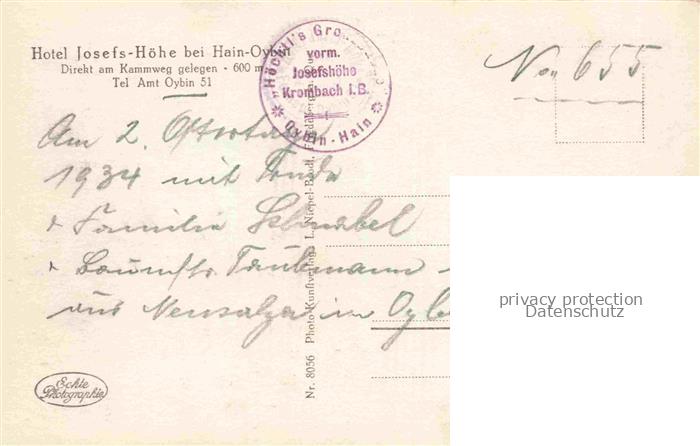 Hotel Josefs-Höhe bei Hain-Oybin
Direkt am Kammweg gelegen - 600 m
Tel Amt Oybin 51
"Höchll's Gro
vorm.
Josefshöhe
Krombach i.B.
Oybin-Hain
No. 655
Am 2. Ostertage
1934 mit
+ Familie Schnabel
+ Baumstr. Taubmann
aus Neusalza in Oyb
Nr. 8056 Photo-Kunstverlag L. Niepel-Bradl,
Echte
Photographie
privacy protection
Datenschutz